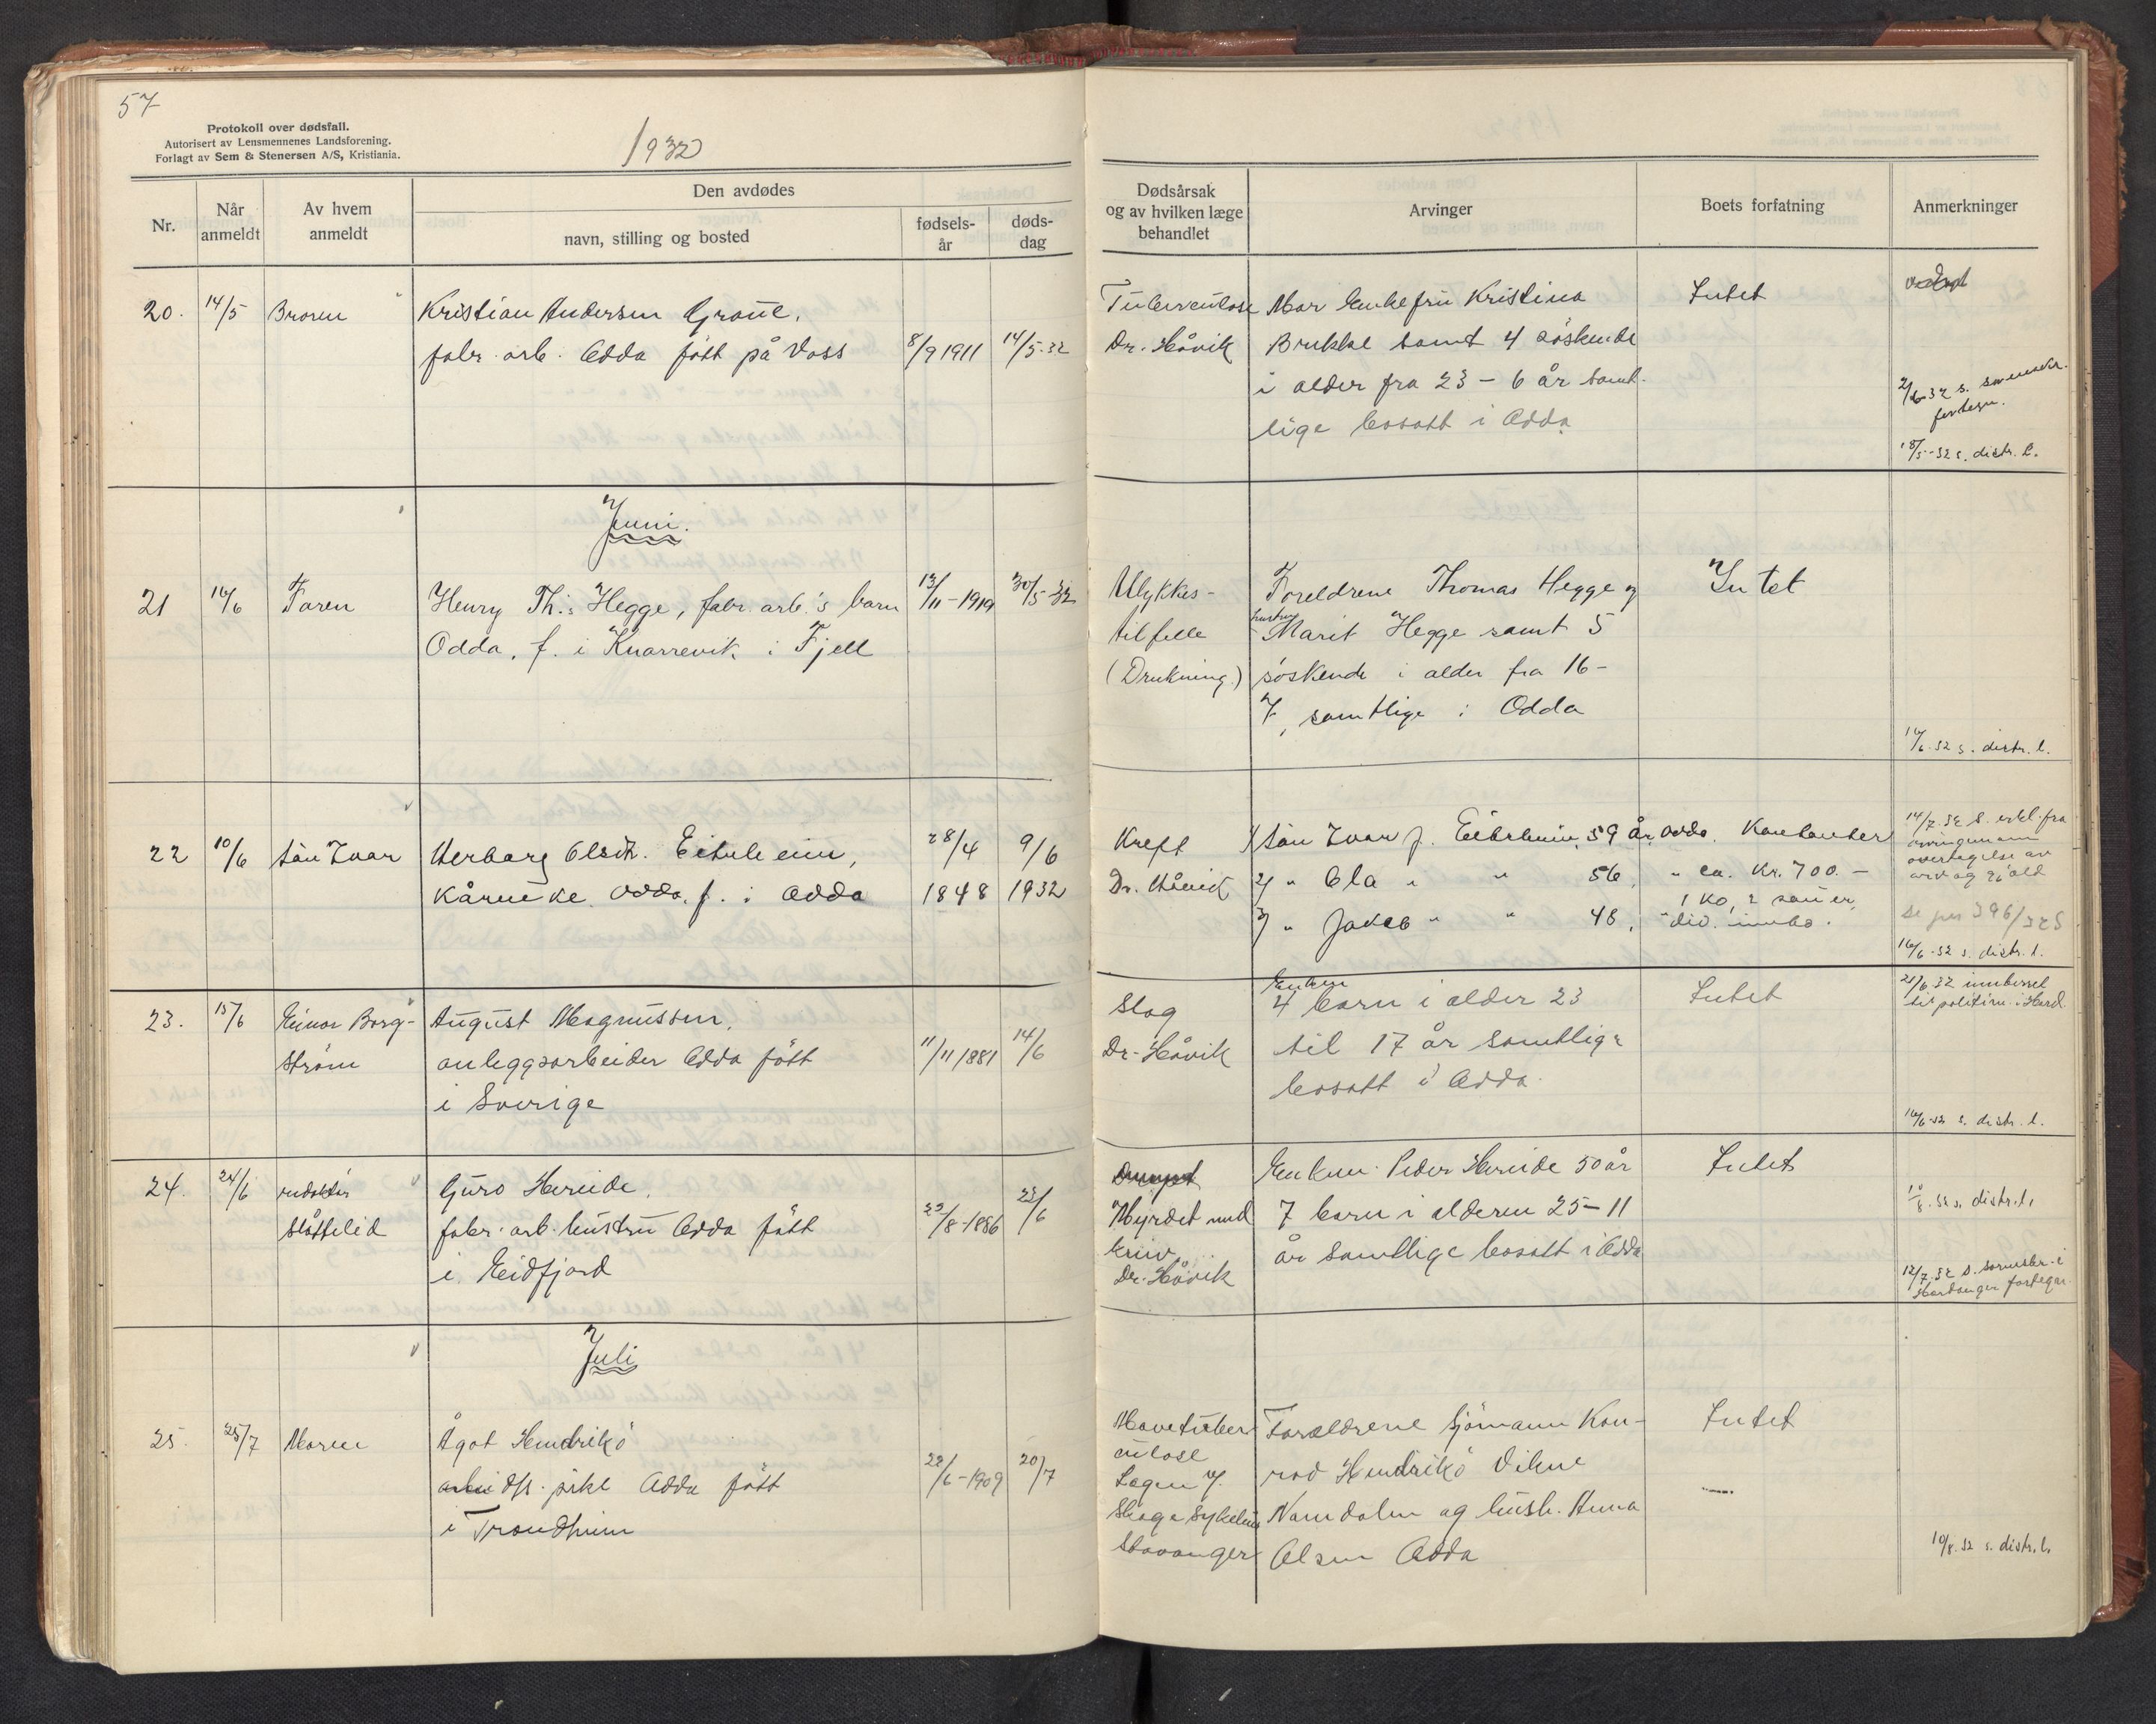 57
Protokoll over dødsfall.
Autorisert av Lensmennenes Landsforening.
Forlagt av Sem & Stenersen A/S, Kristiania.
1932
Nr.
Når anmeldt
Av hvem anmeldt
Den avdødes
navn, stilling og bosted
fødsels-år
døds-dag
Dødsårsak og av hvilken læge behandlet
Arvinger
Boets forfatning
Anmerkninger
20. 14/5 Broren
Kristian Andersen
fabr. arb. Odda født på Voss
8/9 1911 14/5-32
Tuberculose
Dr. Håvik
Mor Enkefru Kristina
Brekke samt 4 søskende
i alder fra 23 - 6 år samt-
lige bosatt i Odda
Intet
2/6-32 s.
18/5-32 s. distr. l.
Juni.
21 16/6 Faren
Henry Th: Hegge, fabr. arb.'s barn
Odda, f. i Knarrevik i Fjell
13/11-1919 30/5-32
Ulykkes-
tilfelle
(Drukning.)
Foreldrene Thomas Hegge og
hustru
Marit Hegge samt 5
søskende i alder fra 16-
7, samtlige i Odda
Intet
16/6-32 s. distr. l.
22 10/6 Søn Ivar
Herborg Olsdt. Eitrheim,
Kårenke Odda, f. i Odda
28/4 1848
9/6 1932
Kreft
Dr. Håvik
1/ Søn Ivar J. Eitrheim, 59 år, Odda.
2/ " Ola " " 56, "
3/ " Jakob " " 48, "
Kontanter
ca. Kr. 700.-
1 ko, 2 sauer,
div. innbo.
14/7-32 s. erkl. fra
arvingene om
overtagelse av
arv og gjæld
se jnr 396/32 S
16/6-32 s. distr. l.
23. 15/6 Einar Borg-
strøm
August Magnussen,
anleggsarbeider Odda født
i Sverige
11/11 1881 14/6
Slag
Dr. Håvik
Enken
4 barn i alder 23
til 17 år samtlige
bosatt i Odda.
Intet
21/6.32 innberset
til politim. i Hard.
16/6-32 s. distr. l.
24. 24/6 redaktør
Slåttelid
Guro Hereide,
fabr. arb. hustru Odda født
i Eidfjord
23/8-1886 23/6
Myrdet med
kniv
Dr. Håvik
Enkem. Peder Hereide 50 år
7 barn i alderen 25-11
år samtlige bosatt i Odda
Intet
10/8.32 s. distr. l.
12/7.32 s. sorenskr. i
Hardanger fortegn.
Juli
25. 25/7 Moren
Ågot Hendrikö
arbeidsk. pike Odda født
i Trondheim
22/6-1909 20/7
Mavetuber-
culose
Legen v/
Sykehus
Stavanger
Foreldrene sjömann Kon-
rad Hendrikö Vikne
Namdalen og hustr. Anna
Olsen Odda
Intet
10/8.32 s. distr. l.